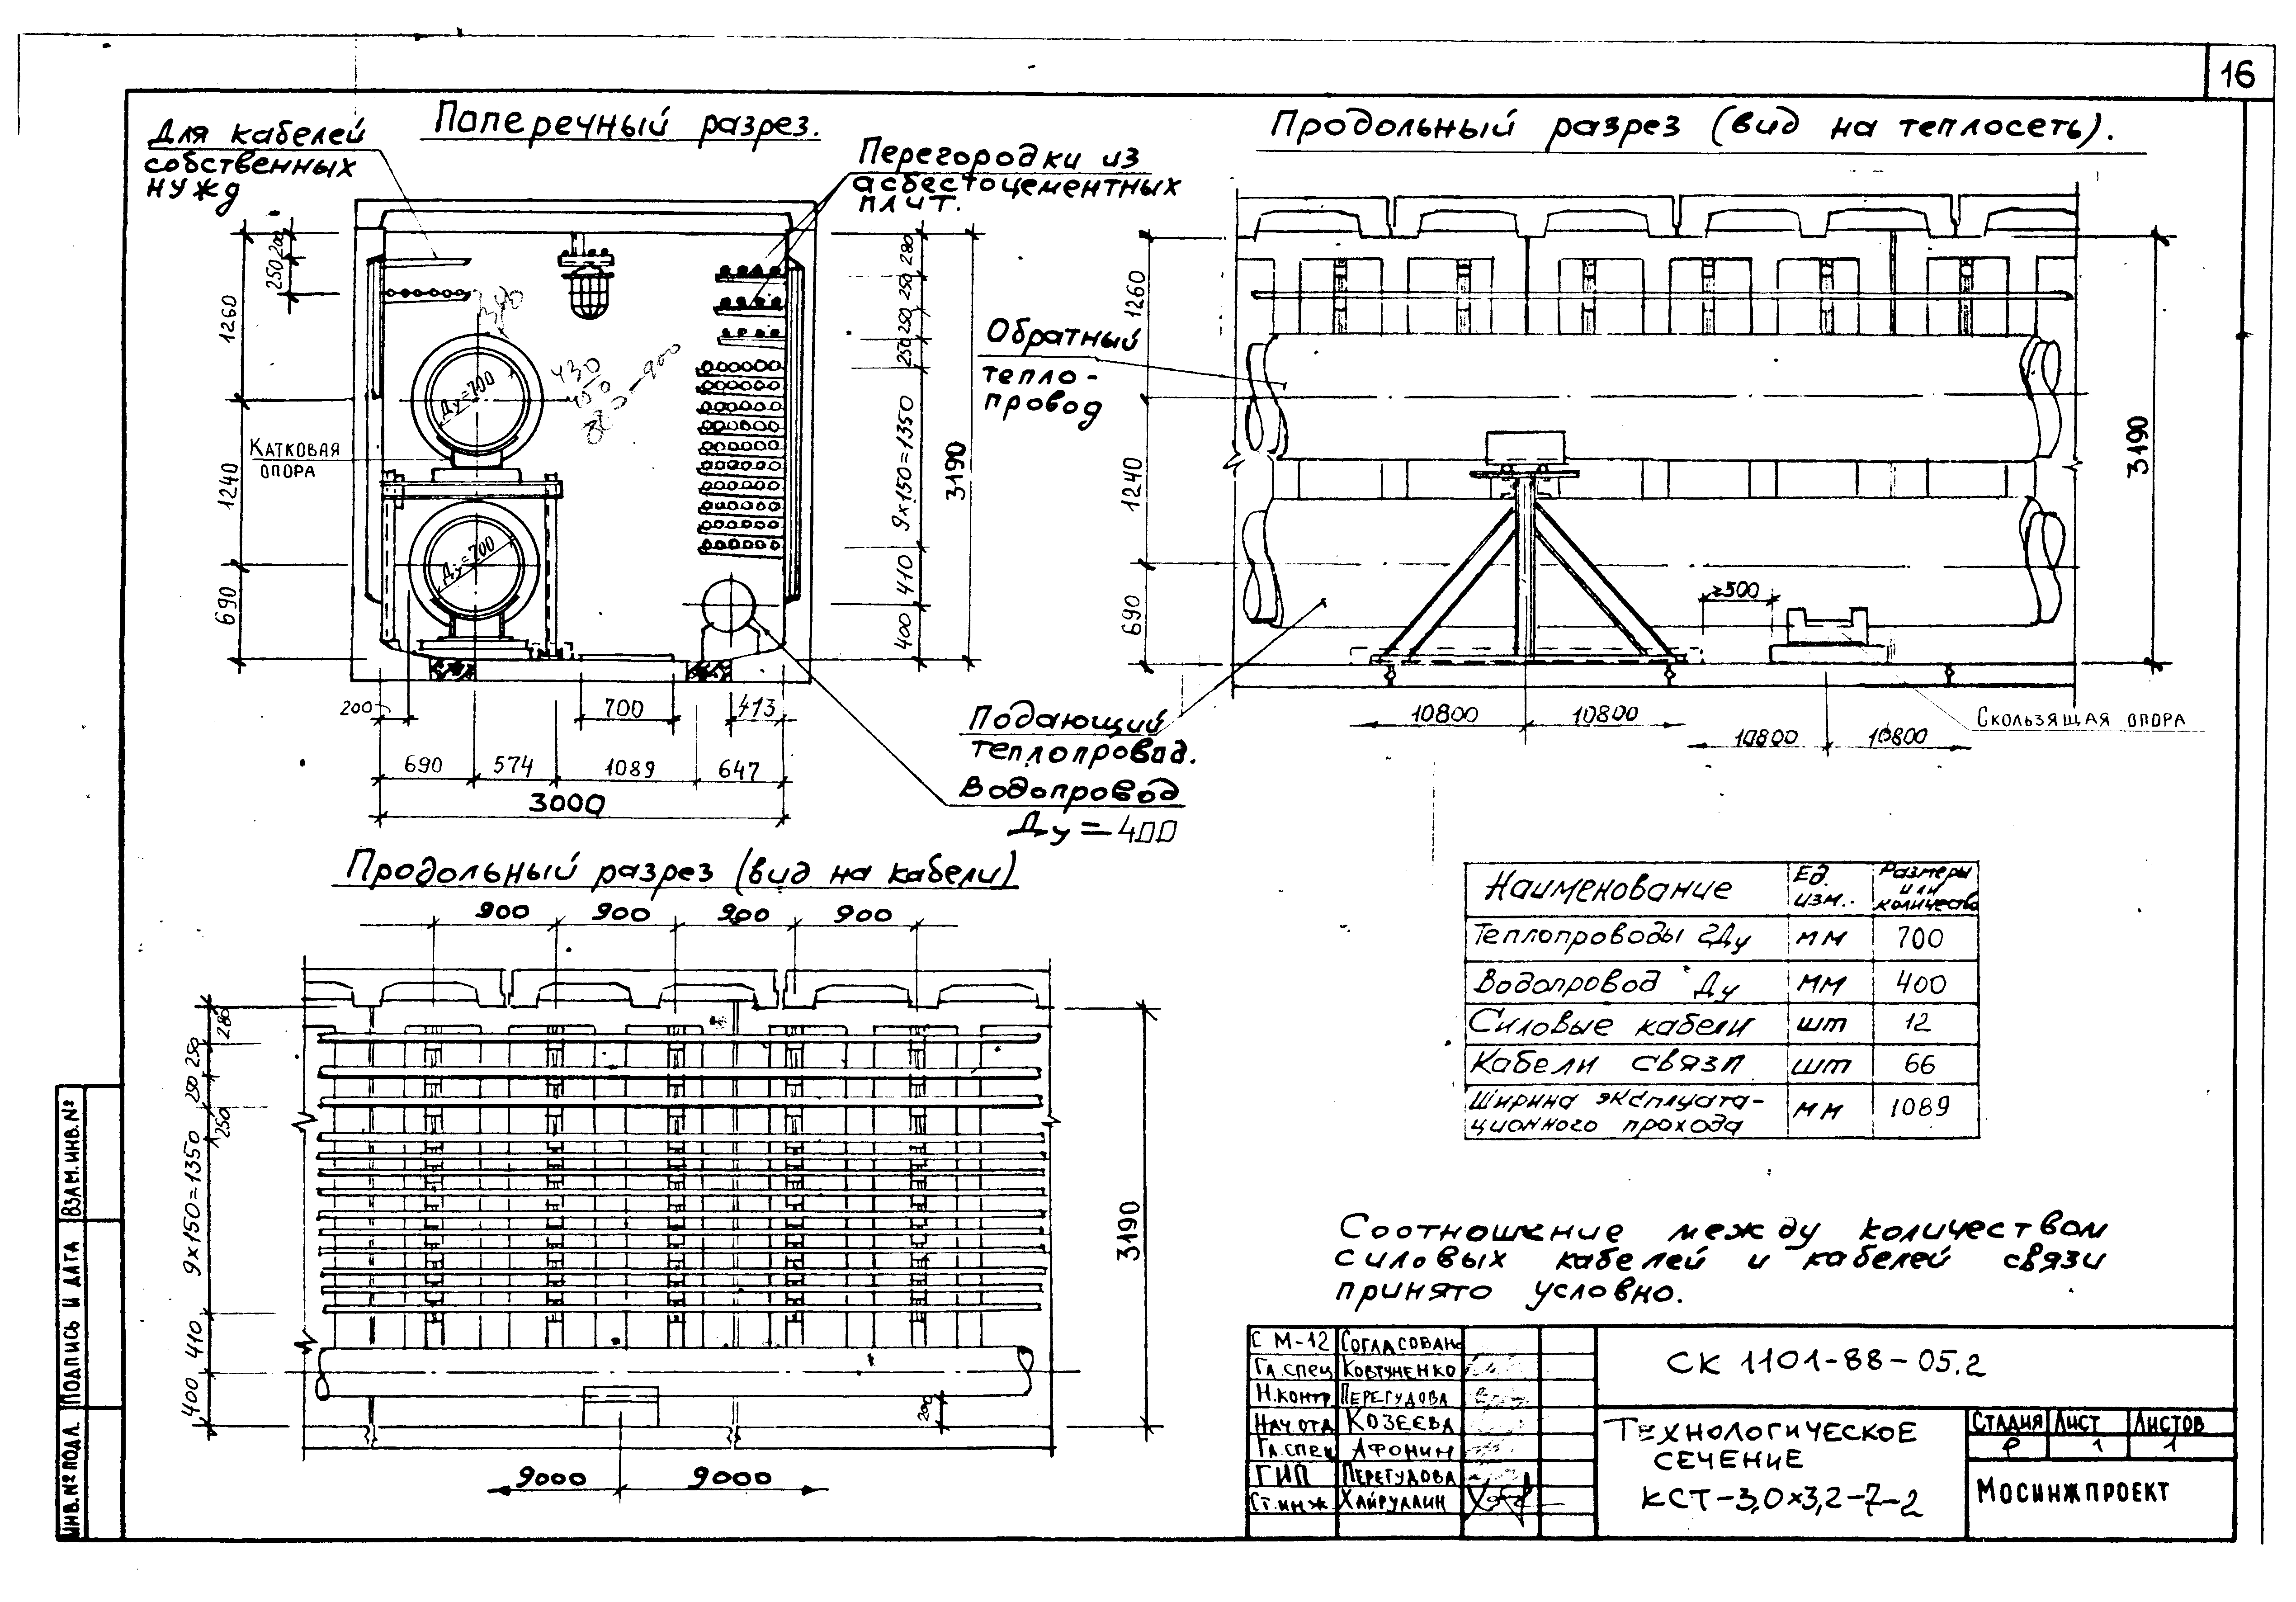 16
Поперечный разрез.
Для кабелей
собственных
нужд
Перегородки из
асбестоцементных
плит.
200
250
1260
1240
690
Ду=700
Катковая
опора
Ду=700
340
430
280
250
250
250
9х150=1350
410
400
3190
200
700
413
690
574
1089
647
3000
Продольный разрез (вид на теплосеть).
Обратный
тепло-
провод
1260
1240
690
3190
≥500
10800
10800
10800
10800
Скользящая опора
Подающий
теплопровод.
Водопровод
Ду=400
Продольный разрез (вид на кабели)
900
900
900
900
280
250
250
250
9х150=1350
410
400
3190
200
9000
9000
Наименование Ед. изм.. Размеры или количество
Теплопроводы 2Ду мм 700
Водопровод Ду мм 400
Силовые кабели шт 12
Кабели связи шт 66
Ширина эксплуата-
ционного прохода мм 1089
Соотношение между количеством
силовых кабелей и кабелей связи
принято условно.
С М-12 Согласован
Гл.спец Ковтуненко
Н.контр Перегудова
Нач.отд Козеева
Гл.спец Афонин
ГИП Перегудова
Ст.инж. Хайруллин
СК 1101-88-05.2
Технологическое
сечение
КСТ-3,0х3,2-7-2
Стадия Лист Листов
Р 1 1
Мосинжпроект
Взам.инв.№
Подпись и дата
Инв.№ подл.